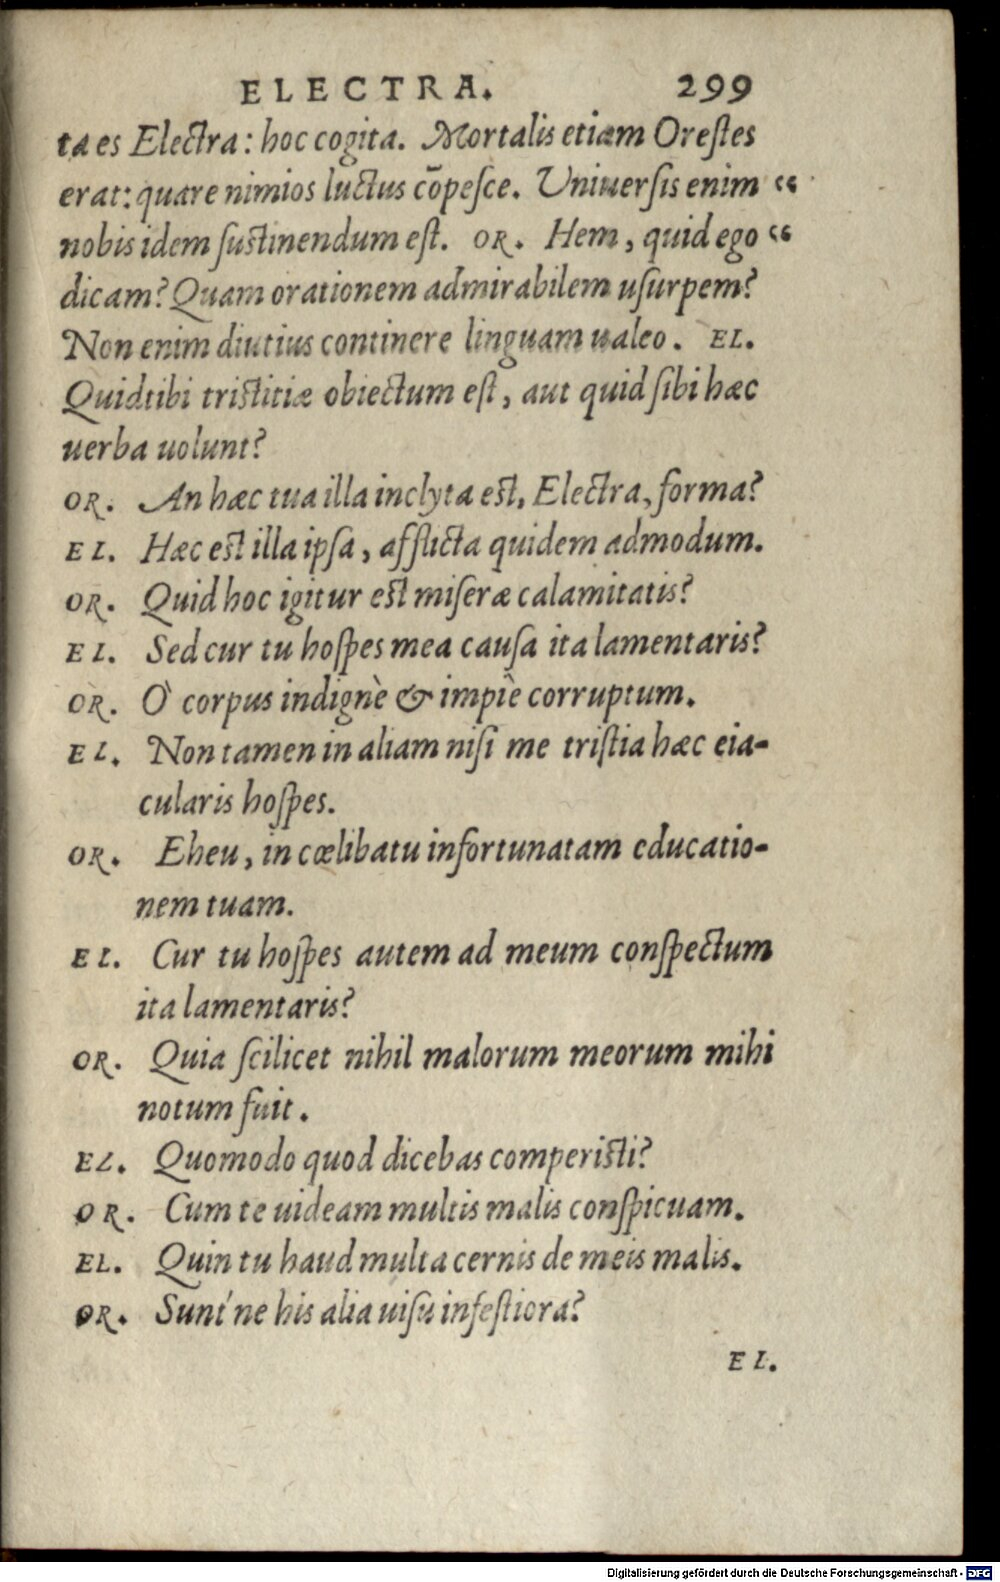 ELECTRA. 299
ta es Electra: hoc cogita. Mortalis etiam Orestes
erat: quare nimios luctus cōpesce. Uniuersis enim “
nobis idem sustinendum est. OR. Hem, quid ego “
dicam? Quam orationem admirabilem usurpem?
Non enim diutius continere linguam ualeo. EL.
Quid tibi tristitiæ obiectum est, aut quid sibi hæc
uerba uolunt?
OR. An hæc tua illa inclyta est, Electra, forma?
EL. Hæc est illa ipsa, afflicta quidem admodum.
OR. Quid hoc igitur est miseræ calamitatis?
EL. Sed cur tu hospes mea causa ita lamentaris?
OR. Ò corpus indignè & impiè corruptum.
EL. Non tamen in aliam nisi me tristia hæc eia-
cularis hospes.
OR. Eheu, in cœlibatu infortunatam educatio-
nem tuam.
EL. Cur tu hospes autem ad meum conspectum
ita lamentaris?
OR. Quia scilicet nihil malorum meorum mihi
notum fuit.
EL. Quomodo quod dicebas comperisti?
OR. Cum te uideam multis malis conspicuam.
EL. Quin tu haud multa cernis de meis malis.
OR. Sunt'ne his alia uisu infestiora?
EL.
Digitalisierung gefördert durch die Deutsche Forschungsgemeinschaft - DFG